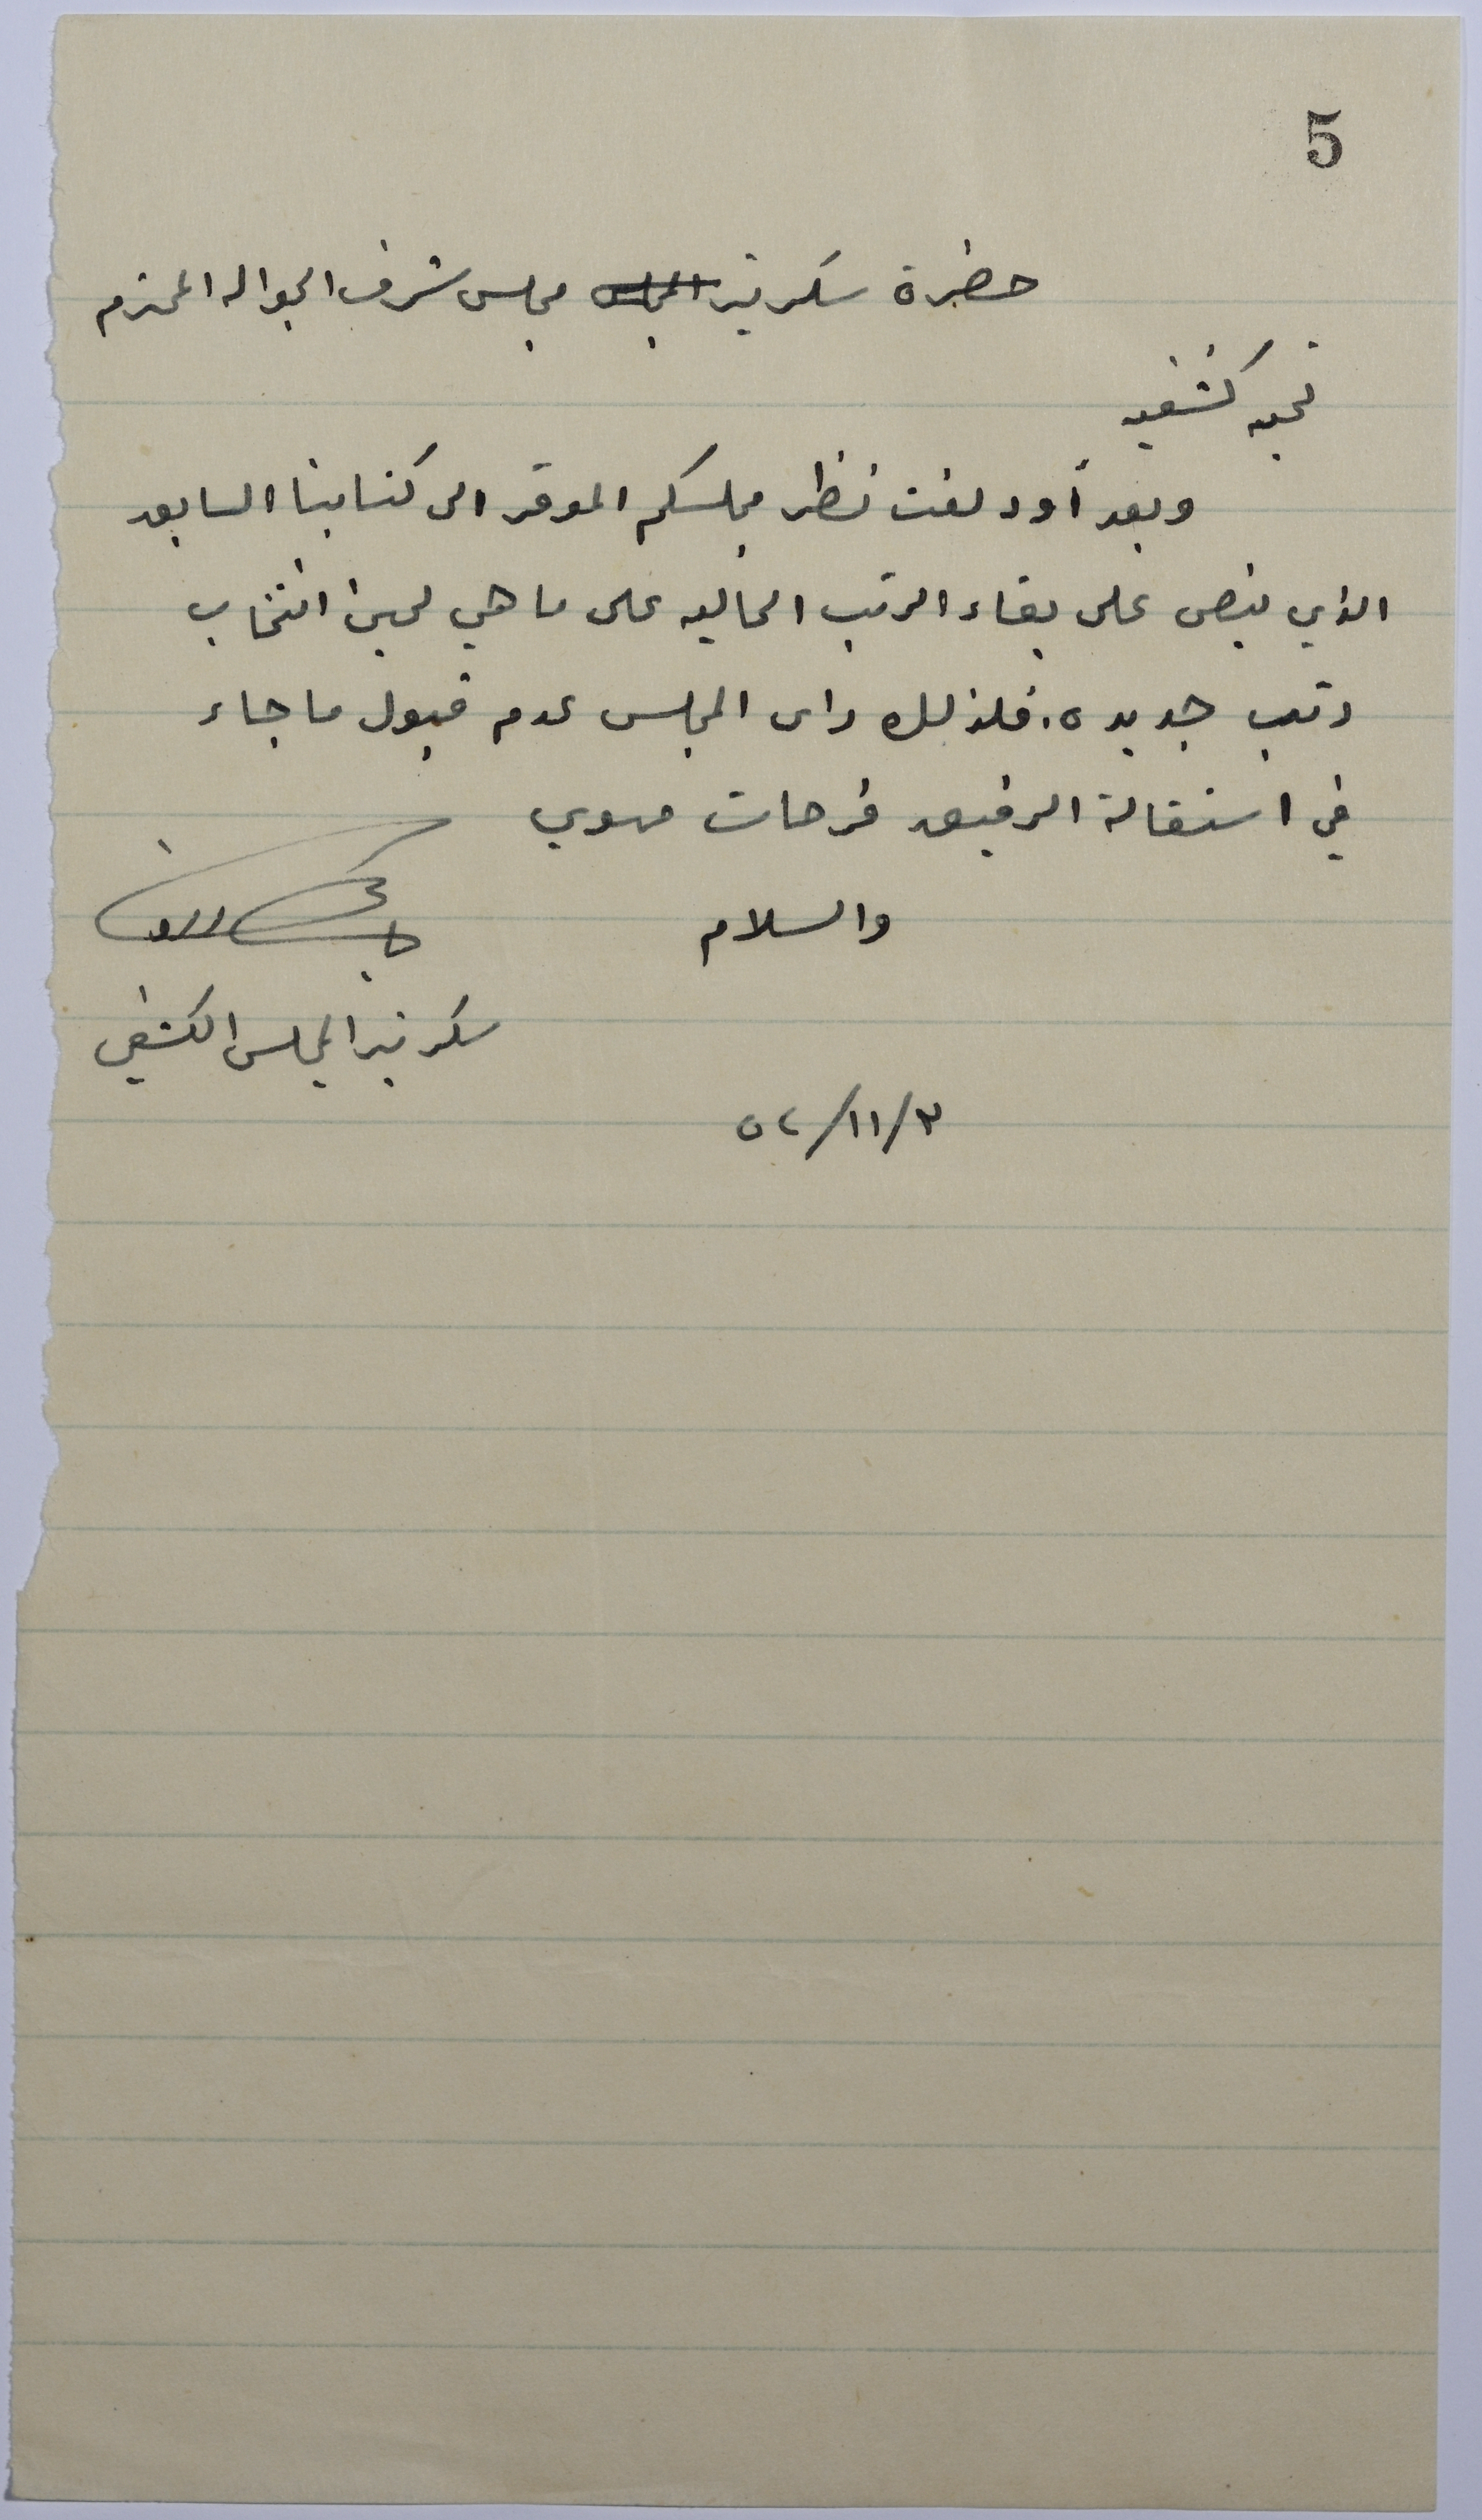 5
حضرة سكرتير المجلس مجلس شرف الجواله المحترم
تحيه كشفيه
وبعد أود لفت نظر مجلسكم الموقر الى كتابنا السابق
الذي ينص على بقاء الرتب الحاليه على ما هي لحين انتخاب
رتب جديده. فلذلك راى المجلس عدم قبول ما جاء
في استقالة الرفيق فرحات مهوي
والسلام
سكرتير المجلس الكشفي
٥٢/١١/٣